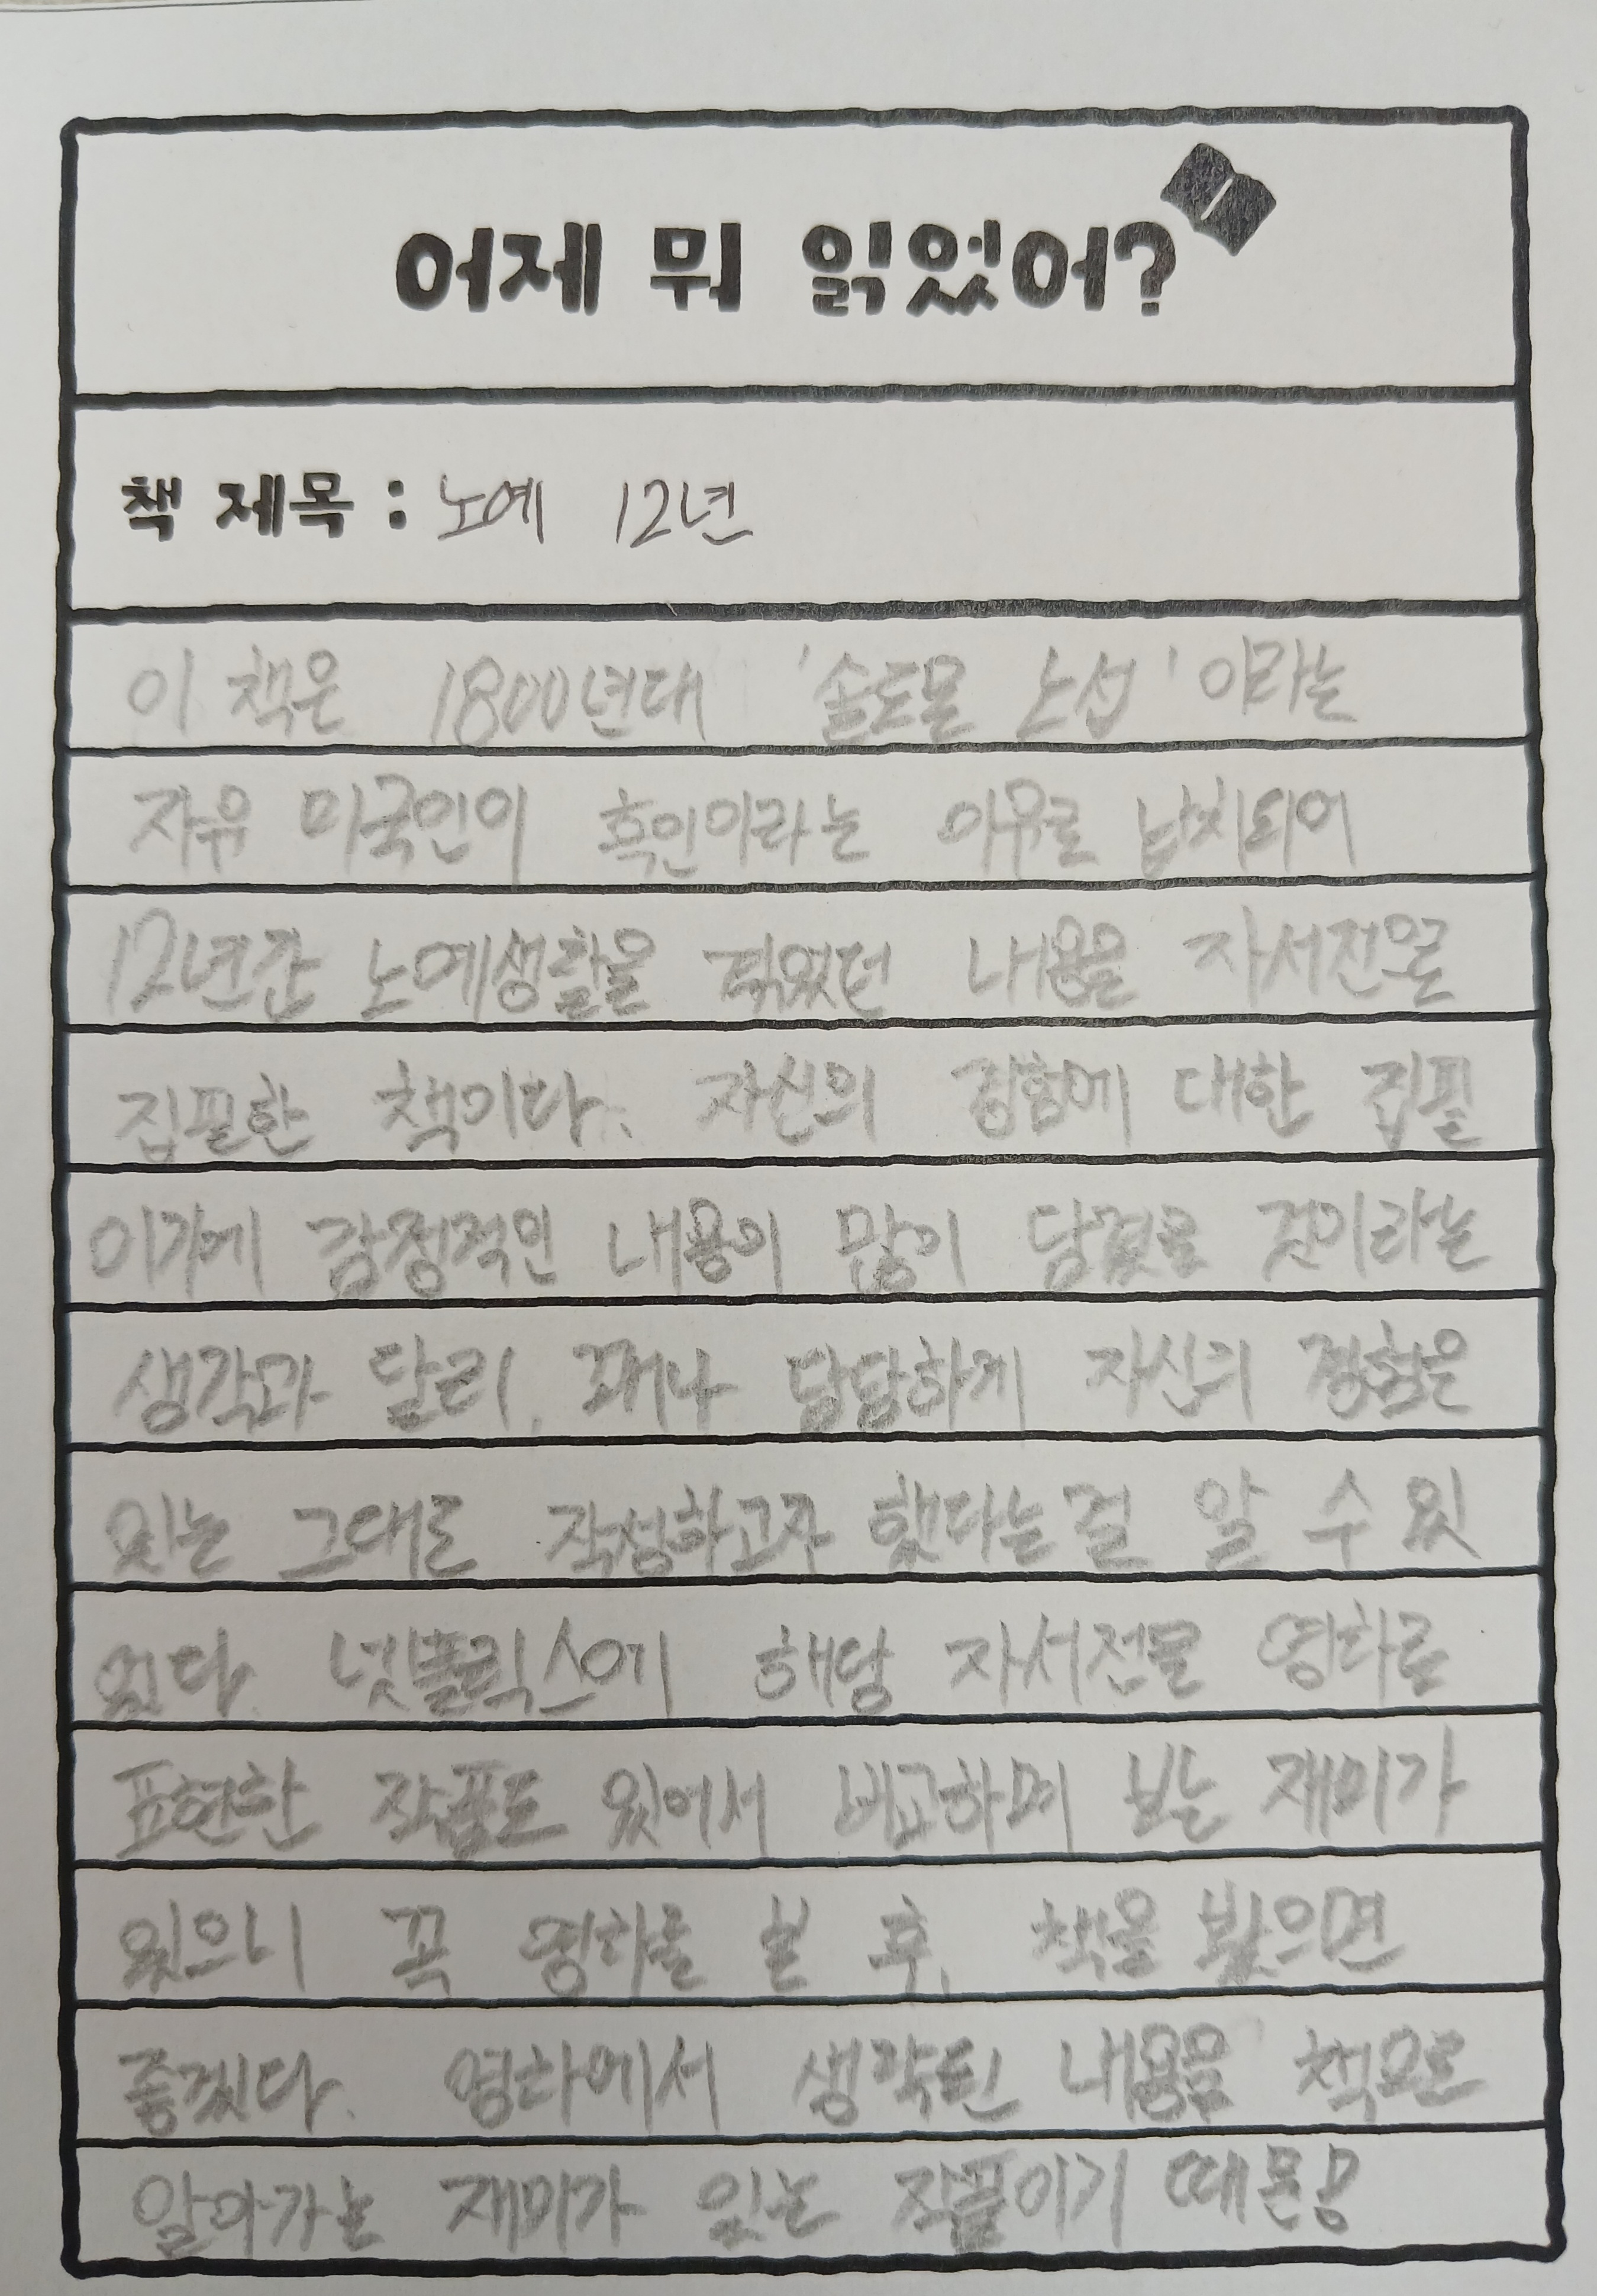 어제 뭐 읽었어?
책 제목 : 노예 12년
이 책은 1800년대 '솔로몬 노섭' 이라는
자유 미국인이 흑인이라는 이유로 납치되어
12년간 노예생활을 겪었던 내용을 자서전으로
집필한 책이다. 자신의 경험에 대한 집필
이기에 감정적인 내용이 많이 담겼을 것이라는
생각과 달리, 꽤나 담담하게 자신의 경험을
있는 그대로 작성하고자 했다는 걸 알 수 있
었다. 넷플릭스에 해당 자서전을 영화로
표현한 작품도 있어서 비교하며 보는 재미가
있으니 꼭 영화를 본 후, 책을 봤으면
좋겠다. 영화에서 생략된 내용을 책으로
알아가는 재미가 있는 작품이기 때문